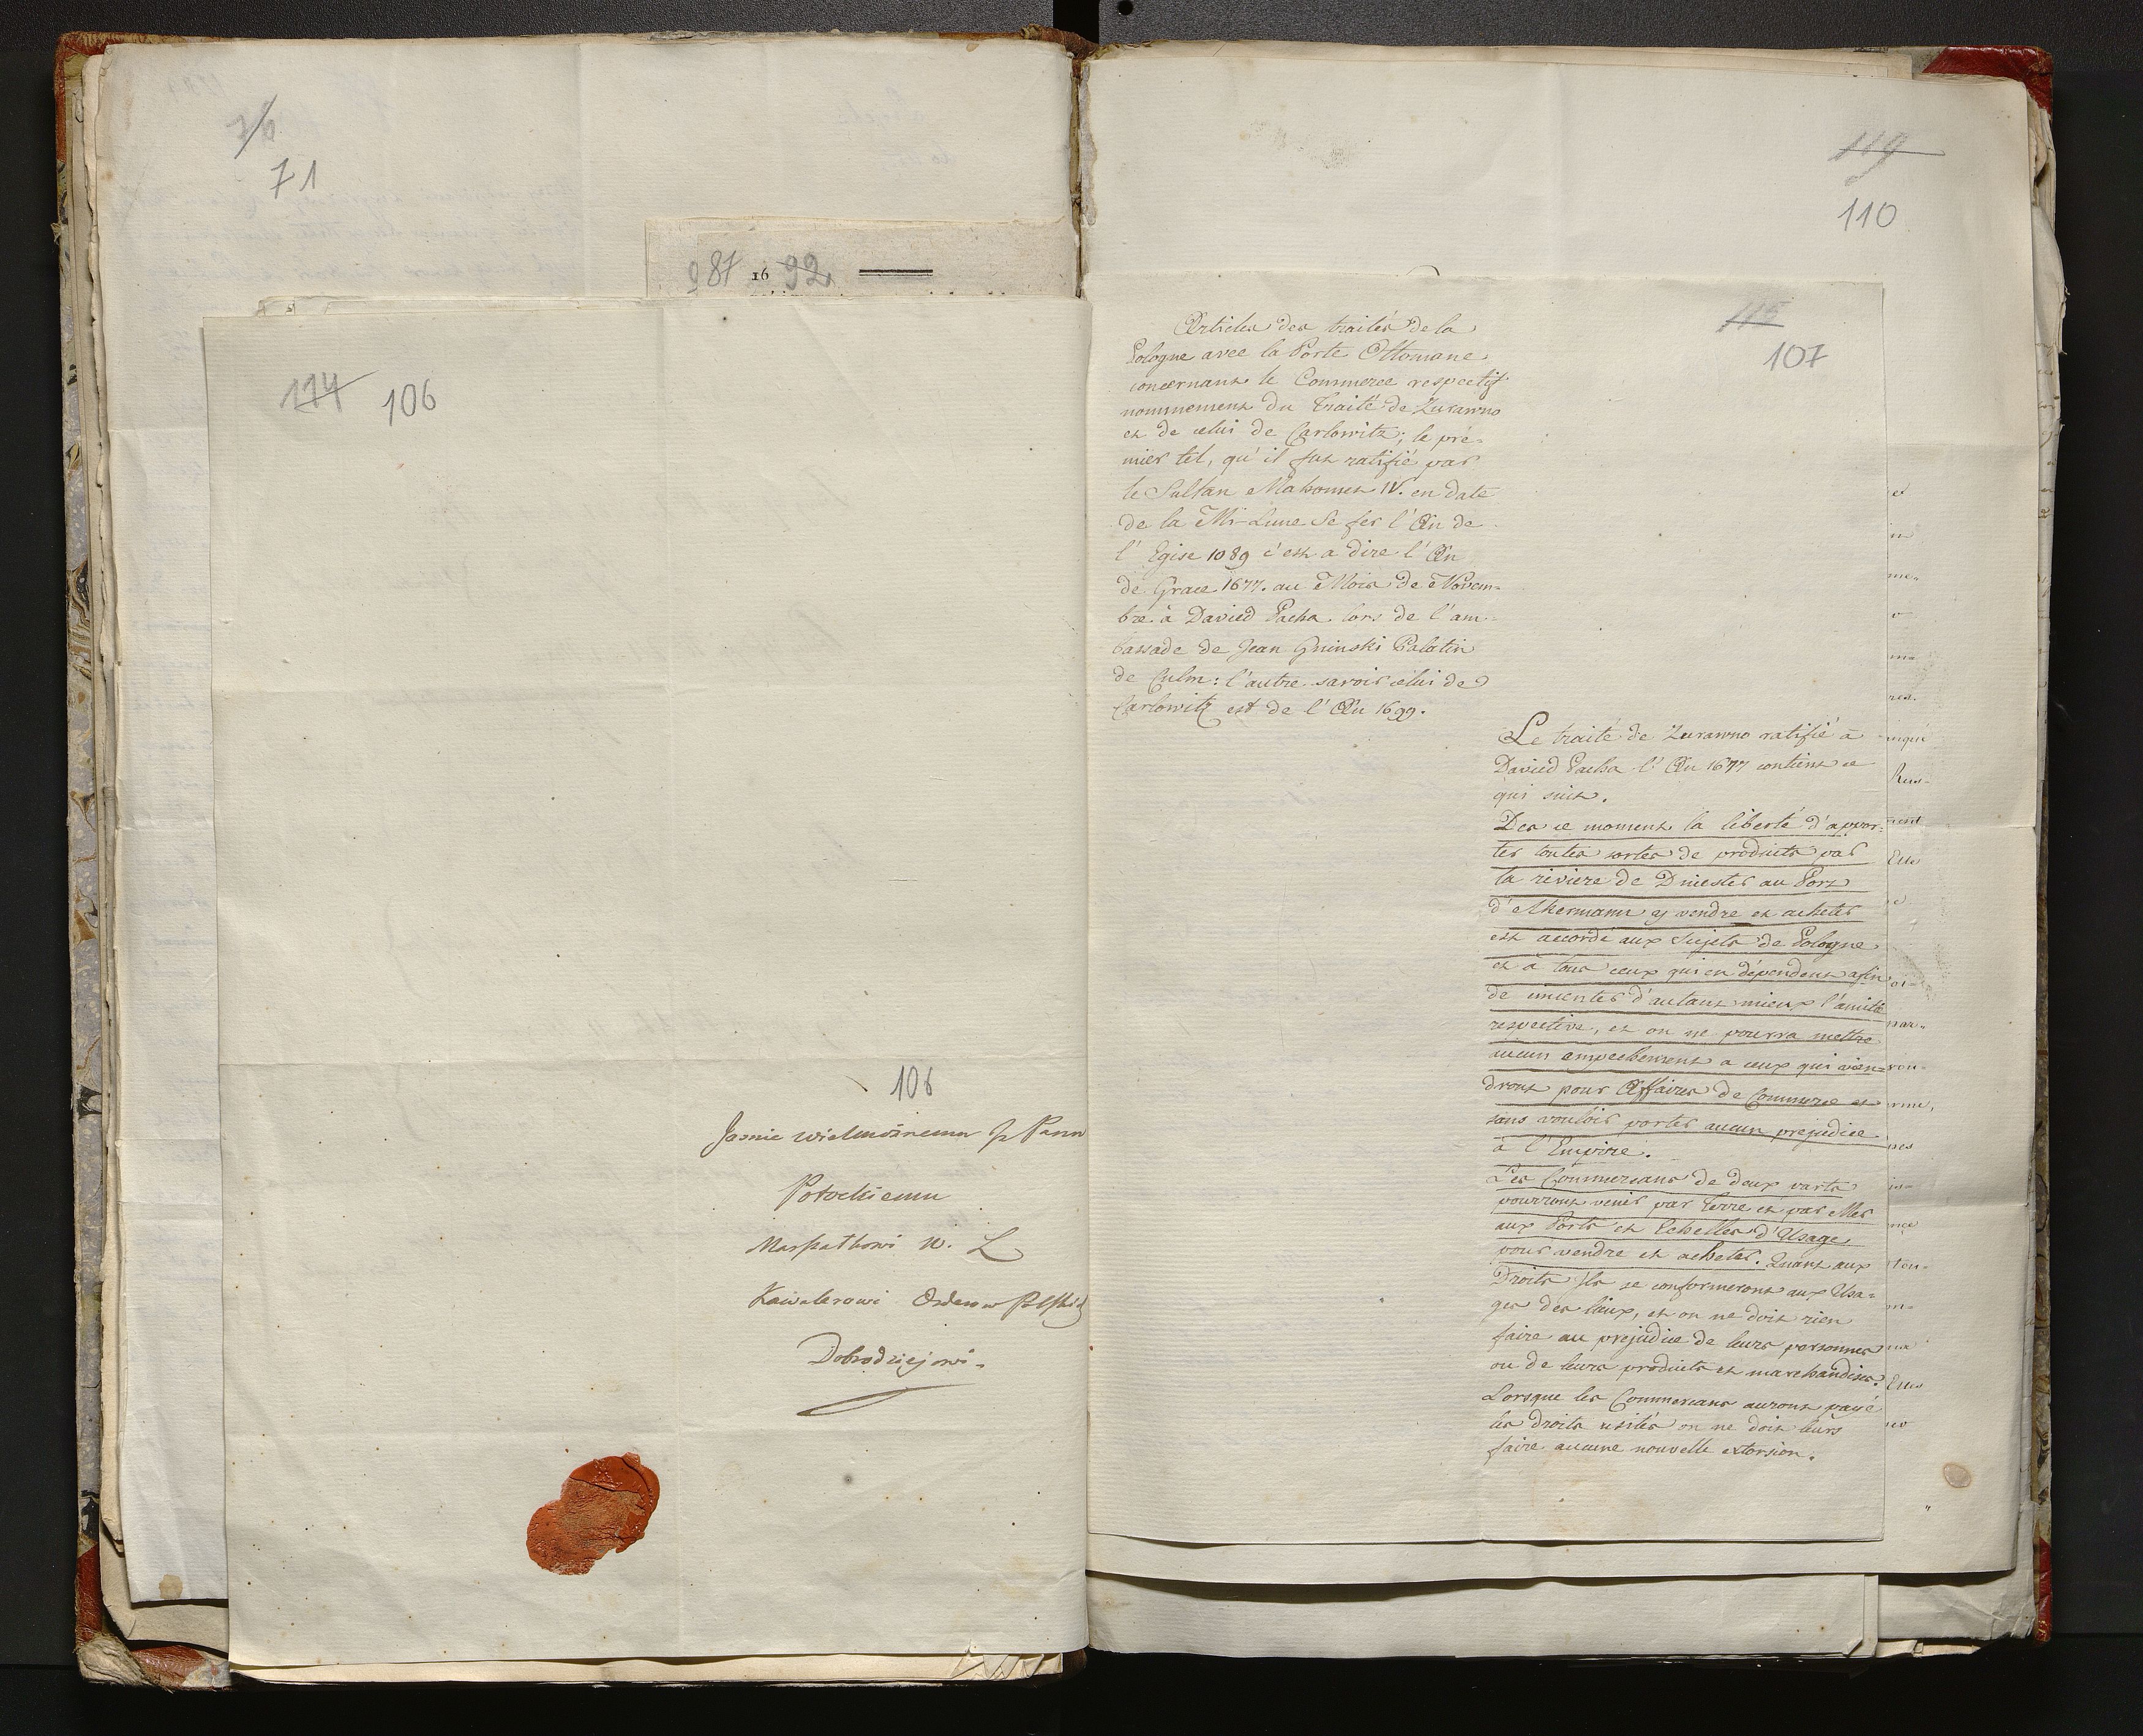 76
71
987 16 92
114 106
106
Jasnie wielmożnemu Jº Panu
Potockiemu
Marszałkowi W. L
Kawalerowi Orderow Polskich
Dobrodziejowi.
119
110
115
107
Articles des traités de la
Pologne avec la Porte Ottomane
concernant le Commerce respectif
nommement du Traité de Zurawno
et de celui de Carlowitz; le pré=
mier tel, qu'il fut ratifié par
le Sultan Mahomet IV. en date
de la Mi-Lune Sefer l'An de
l'Egise 1089 c'est a dire l'An
de Grace 1677. au Mois de Novem=
bre à Davied Pacha lors de l'am=
bassade de Jean Gninski Palatin
de Culm: l'autre savoir celui de
Carlowitz est de l'An 1699.
Le traité de Zurawno ratifié à
Davied Pacha l'An 1677 contient ce
qui suit.
Des ce moment la liberté d'appor=
ter toutes sortes de produits par
la riviere de Dniester au Port
d'Akermann y vendre et acheter
est accordé aux Sujets de Pologne
et à tous ceux qui en dépendent afin
de cimenter d'autant mieux l'amitié
respective, et on ne pourra mettre
aucun empechement a ceux qui vien=
dront pour Affaires de Commerce et
sans vouloir porter aucun prejudice
à l'Empire.
Les Commercans de deux parts
pourront venir par Terre et par Mer
aux Ports et Echelles d'Usage
pour vendre et acheter. Quant aux
Droits Ils se conformeront aux Usa=
ges des lieux, et on ne doit rien
faire au prejudice de leurs personnes
ou de leurs produits et marchandises.
Lorsque les Commercans auront payé
les droits usités on ne doit leurs
faire aucune nouvelle extorsion.